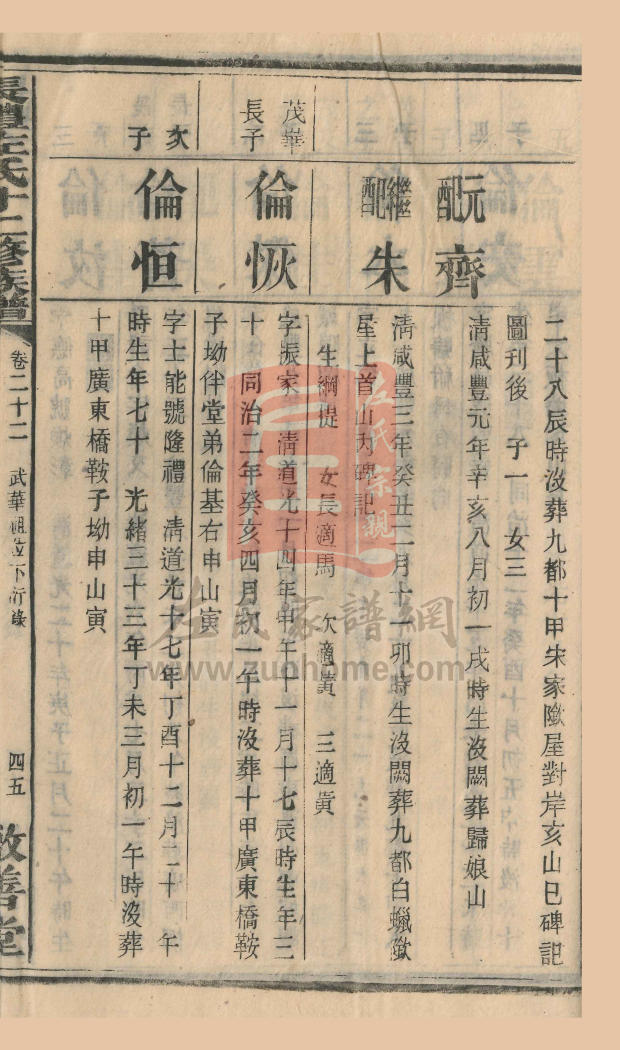 二十八辰時沒葬九都十甲宋家隞屋對岸亥山巳碑記
圖刊後 子一 女三
元配 齊
淸咸豐元年辛亥八月初一戌時生沒闕葬歸娘山
繼配 朱
淸咸豐三年癸丑二月十一卯時生沒闕葬九都白蠟隞
星上首山丙碑記
生綱提 女長適馬 次適黃 三適黃
茂華長子
倫恢
字振家 淸道光十四年甲午十一月十七辰時生年三
十 同治二年癸亥四月初一午時沒葬十甲廣東橋鞍
子坳伴堂弟倫基右申山寅
次子
倫恒
字士能號隆禮 淸道光十七年丁酉十二月二十 午
時生年七十 光緒三十三年丁未三月初一午時沒葬
十甲廣東橋鞍子坳申山寅
長澧左氏十二修族譜
卷二十二
武華祖位下衍錄
四五
敦善堂
左氏宗親
左氏家譜網
www.zuohome.com